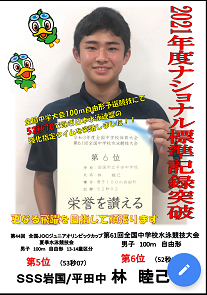 2021年度ナショナル標準記録突破
全国中学大会100m自由形予選競技にて
栄誉を讃える
更なる飛躍を目指して頑張ります
第44回 全国JOCジュニアオリンピックカップ
夏季水泳競技会
男子 100m 自由形 13-14歳区分
第5位 (53秒07)
第61回全国中学校水泳競技大会
男子 100m 自由形
第6位 (52秒
SSS岩国/平田中 林 睦己
第6位